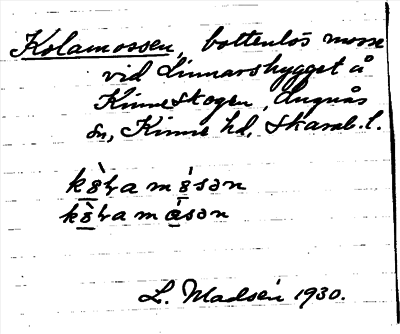 Kolamossen, bottenlös mosse
vid Linnarshygget å
Kinneskogen, Lugnås
sn, Kinne hd, Skarab. l.
kò̱ɬamó̱sən
kò̱ɬamó̱sən
L. Madsén 1930.